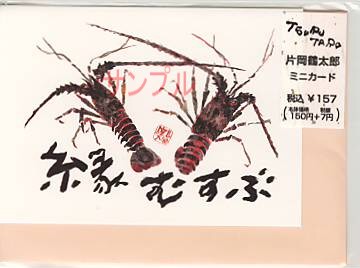 TSURU
TARO
片岡鶴太郎
ミニカード
税込 ¥157
(本体価格 税額
150円+7円)
サンプル
縁むすぶ